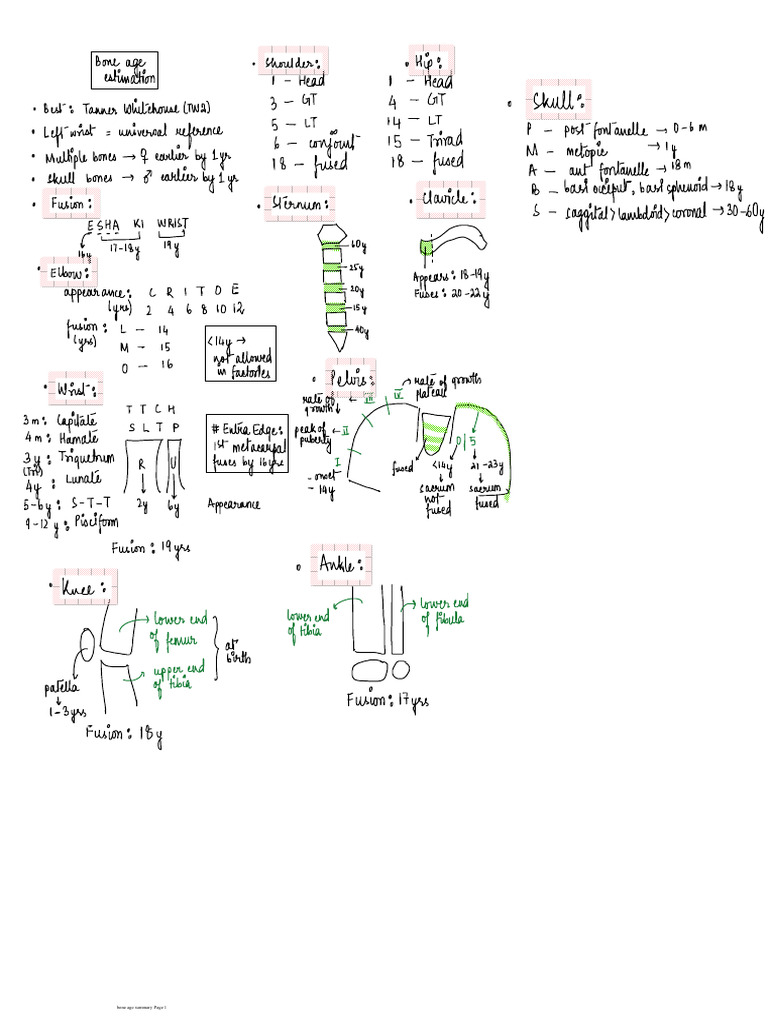 Bone age
estimation
• Best: Tanner Whitehouse (TW2)
• Left wrist = universal reference
• Multiple bones → ♀ earlier by 1 yr
• skull bones → ♂ earlier by 1 yr
• Fusion:
ESHA KI WRIST
16y 17-18y 19y
• Elbow:
appearance: C R I T O E
(yrs) 2 4 6 8 10 12
fusion: L — 14
(yrs) M — 15
O — 16
<14y →
not allowed
in factories
• Wrist:
3 m: Capitate
4 m: Hamate
3 y: Triquetrum
(Tri)
4y : Lunate
5-6y: S-T-T
9-12 y: Pisciform
T T C H
S L T P
R U
2y 6y Appearance
Fusion: 19yrs
# Extra Edge:
1st metacarpal
fuses by 16yrs
• Knee:
lower end
of femur
upper end
of tibia
at
birth
patella
1-3yrs
Fusion: 18y
• Shoulder:
1 — Head
3 — GT
5 — LT
6 — conjoint
18 — fused
• Hip:
1 — Head
4 — GT
14 — LT
15 — Trirad
18 — fused
• Skull:
P — post fontanelle → 0-6 m
M — metopic → 1y
A — ant fontanelle → 18m
B — basi occiput, basi sphenoid → 18y
S — saggital > lambdoid > coronal → 30-60y
• Sternum:
60y
25y
20y
15y
40y
• Clavicle:
Appears: 18-19y
Fuses: 20-22y
• Pelvis:
rate of
growth ↓
← III IV
→ rate of growth
plateau
peak of
puberty
← II
I
- onset
- 14y
fused
<14y
sacrum
not
fused
0/5
21-23y
sacrum
fused
• Ankle:
lower end
of tibia
lower end
of fibula
Fusion: 17yrs
bone age summary Page 1